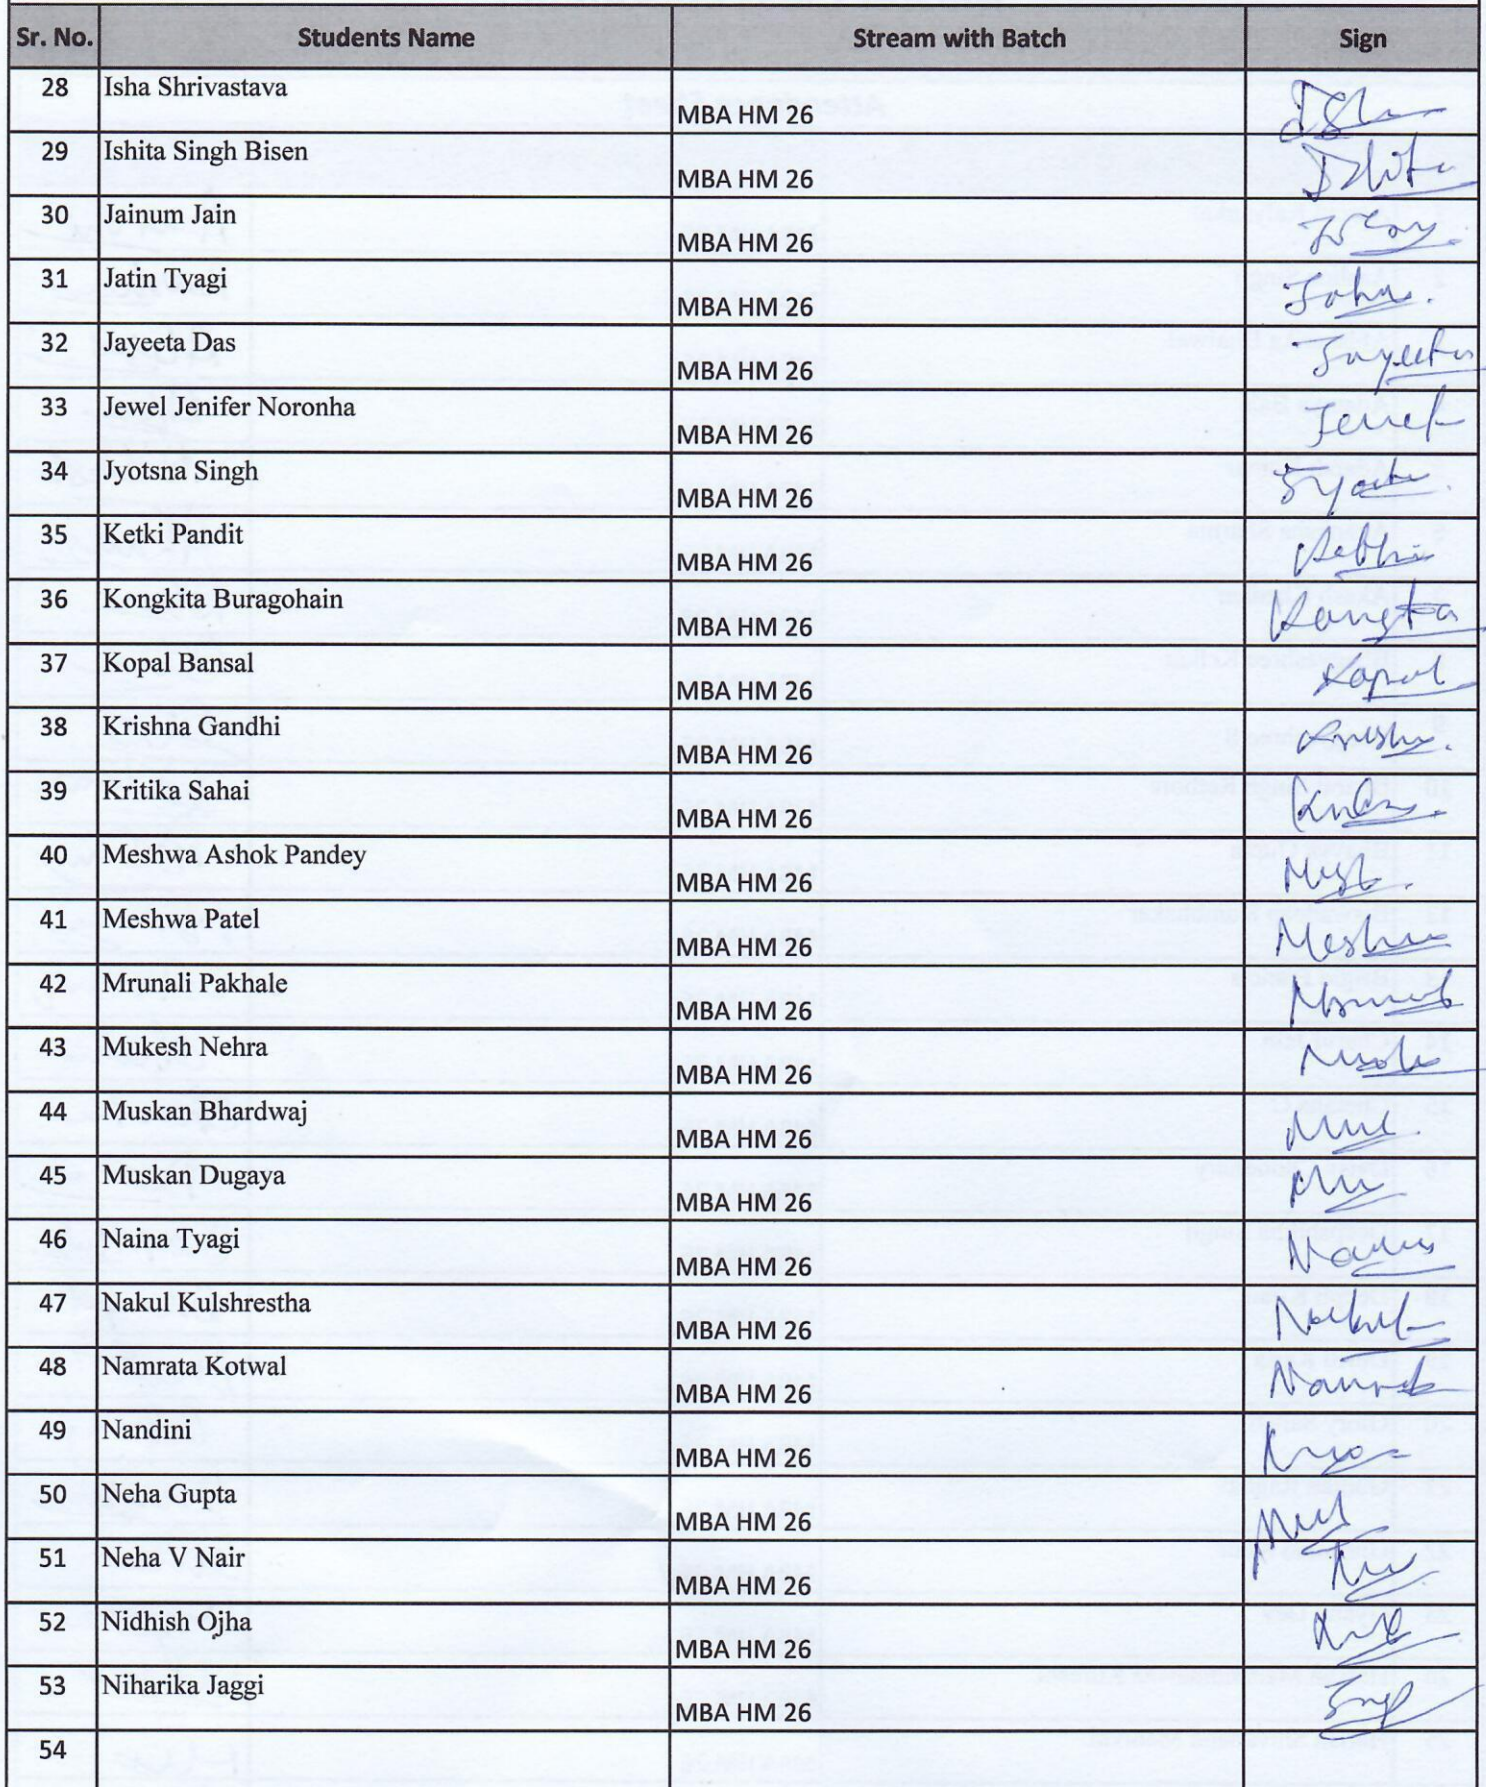 Sr. No. Students Name Stream with Batch Sign
28 Isha Shrivastava MBA HM 26
29 Ishita Singh Bisen MBA HM 26
30 Jainum Jain MBA HM 26
31 Jatin Tyagi MBA HM 26
32 Jayeeta Das MBA HM 26 Jayeeta
33 Jewel Jenifer Noronha MBA HM 26
34 Jyotsna Singh MBA HM 26
35 Ketki Pandit MBA HM 26
36 Kongkita Buragohain MBA HM 26
37 Kopal Bansal MBA HM 26 Kopal
38 Krishna Gandhi MBA HM 26
39 Kritika Sahai MBA HM 26
40 Meshwa Ashok Pandey MBA HM 26
41 Meshwa Patel MBA HM 26
42 Mrunali Pakhale MBA HM 26
43 Mukesh Nehra MBA HM 26
44 Muskan Bhardwaj MBA HM 26
45 Muskan Dugaya MBA HM 26
46 Naina Tyagi MBA HM 26
47 Nakul Kulshrestha MBA HM 26
48 Namrata Kotwal MBA HM 26
49 Nandini MBA HM 26
50 Neha Gupta MBA HM 26
51 Neha V Nair MBA HM 26
52 Nidhish Ojha MBA HM 26
53 Niharika Jaggi MBA HM 26
54